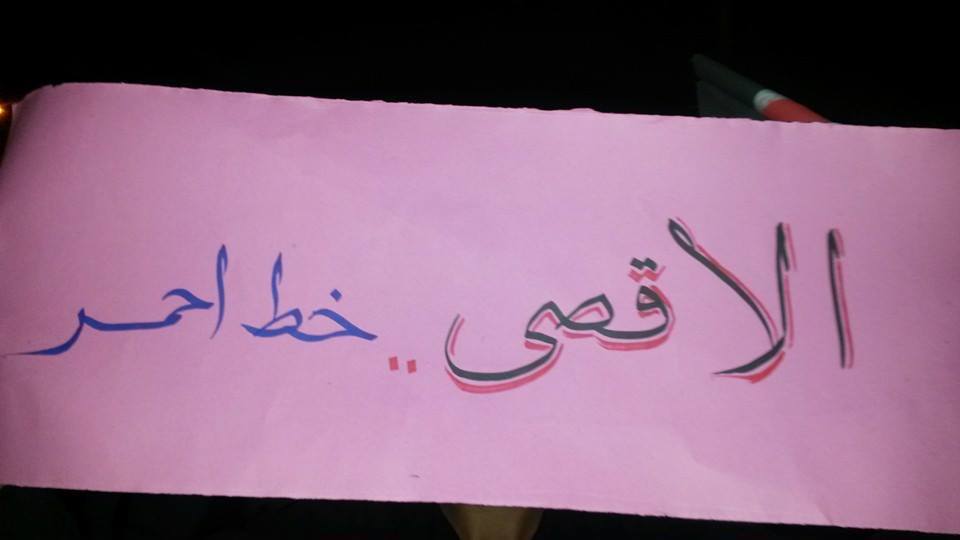 الاقصى .. خط احمر